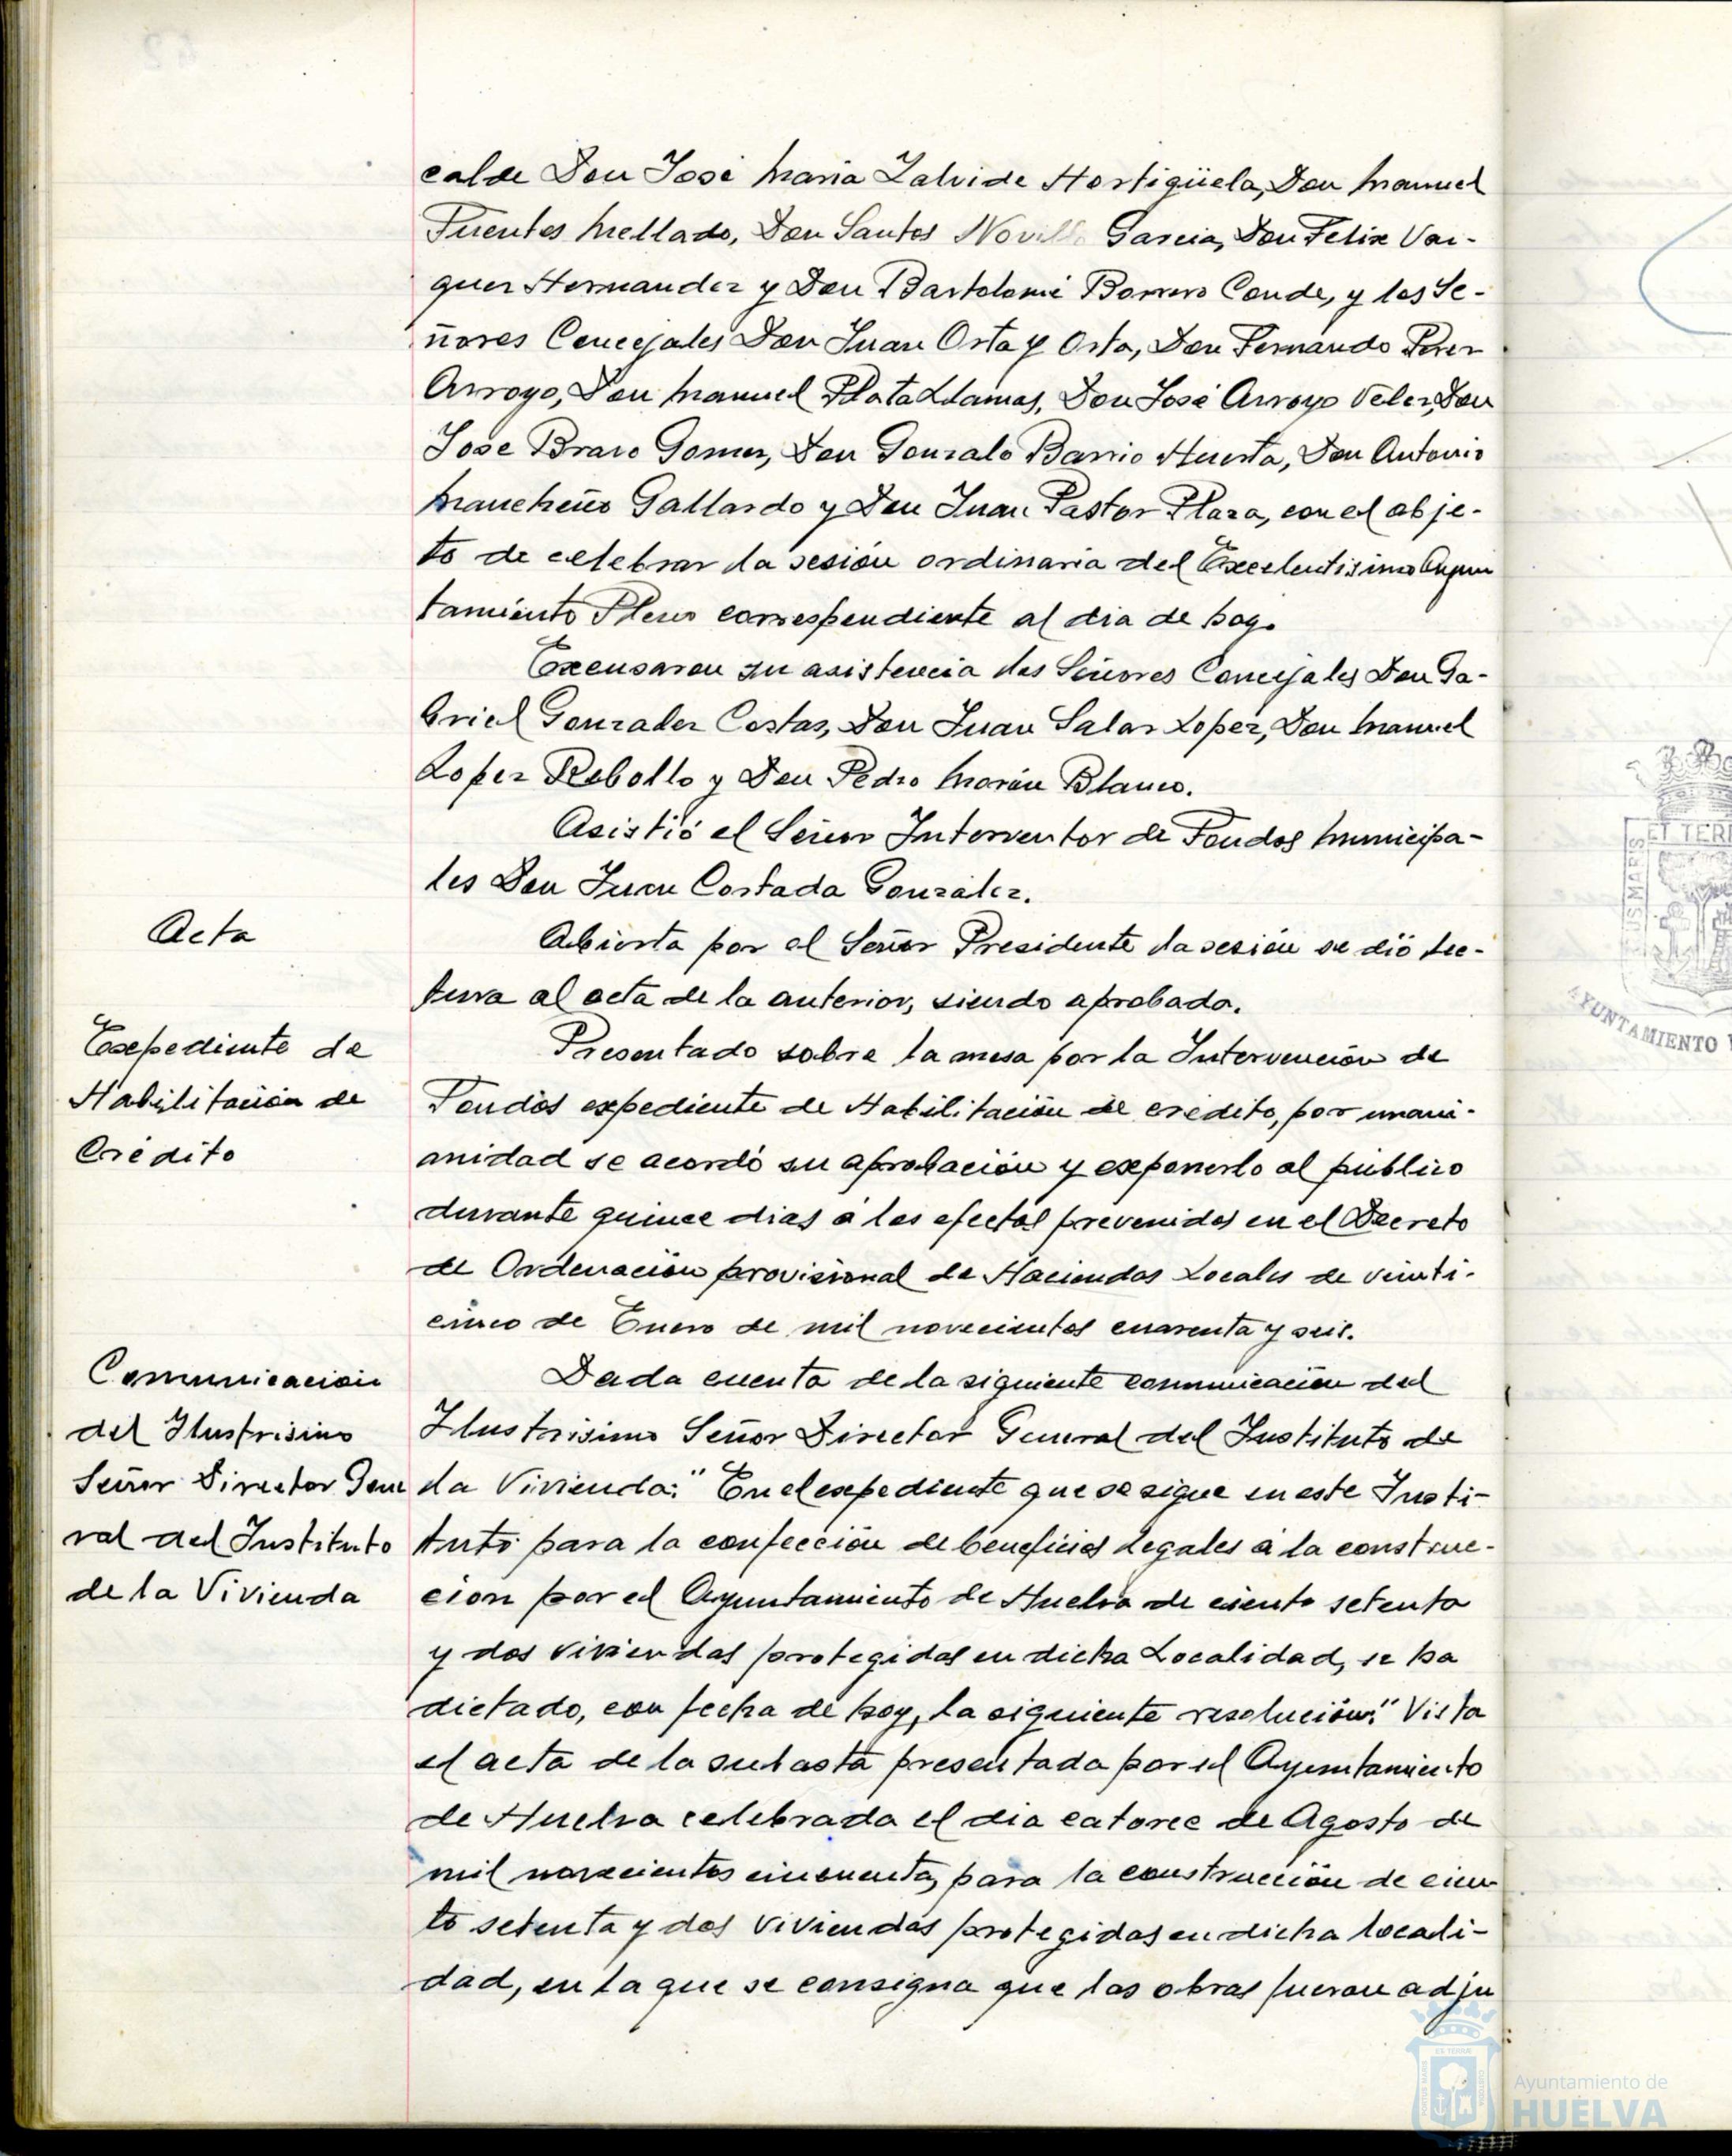 calde Don José Maria Zalvide Hortigüela, Don Manuel
Fuentes Mellado, Don Santos Novillo Garcia, Don Felix Vaz-
quez Hernandez y Don Bartolomé Borrero Conde, y los Se-
ñores Concejales Don Juan Orta y Orta, Don Fernando Perez
Arroyo, Don Manuel Plata Llamas, Don José Arroyo Velez, Don
Jose Bravo Gomez, Don Gonzalo Barrio Huerta, Don Antonio
Mancheño Gallardo y Don Juan Pastor Plaza, con el obje-
to de celebrar la sesión ordinaria del Excelentisimo Ayun
tamiento Pleno correspondiente al dia de hoy.
Excusaron su asistencia los Señores Concejales Don Ga-
briel Gonzalez Costas, Don Juan Salas Lopez, Don Manuel
Lopez Rebollo y Don Pedro Morón Blanco.
Asistió el Señor Interventor de Fondos Municipa-
les Don Juan Costada González.
Acta
Abierta por el Señor Presidente la sesión se dió lec-
tura al acta de la anterior, siendo aprobada.
Expediente de
Habilitación de
Crédito
Presentado sobre la mesa por la Intervención de
Fondos expediente de Habilitación de crédito, por unani-
midad se acordó su aprobación y exponerlo al público
durante quince dias a los efectos prevenidos en el Decreto
de Ordenación provisional de Haciendas Locales de veinti-
cinco de Enero de mil novecientos cuarenta y seis.
Comunicación
del Ilustrisimo
Señor Director Gene
ral del Instituto
de la Vivienda
Dada cuenta de la siguiente comunicación del
Ilustrisimo Señor Director General del Instituto de
la Vivienda: "En el expediente que se sigue en este Insti-
tuto para la confección de beneficios legales a la construc-
cion por el Ayuntamiento de Huelva de ciento setenta
y dos viviendas protegidas en dicha Localidad, se ha
dictado, con fecha de hoy, la siguiente resolución:" Vista
el acta de la subasta presentada por el Ayuntamiento
de Huelva celebrada el dia catorce de Agosto de
mil novecientos cincuenta, para la construcción de cien-
to setenta y dos viviendas protegidas en dicha locali-
dad, en la que se consigna que las obras fueron adju
AYUNTAMIENTO
Ayuntamiento de
HUELVA